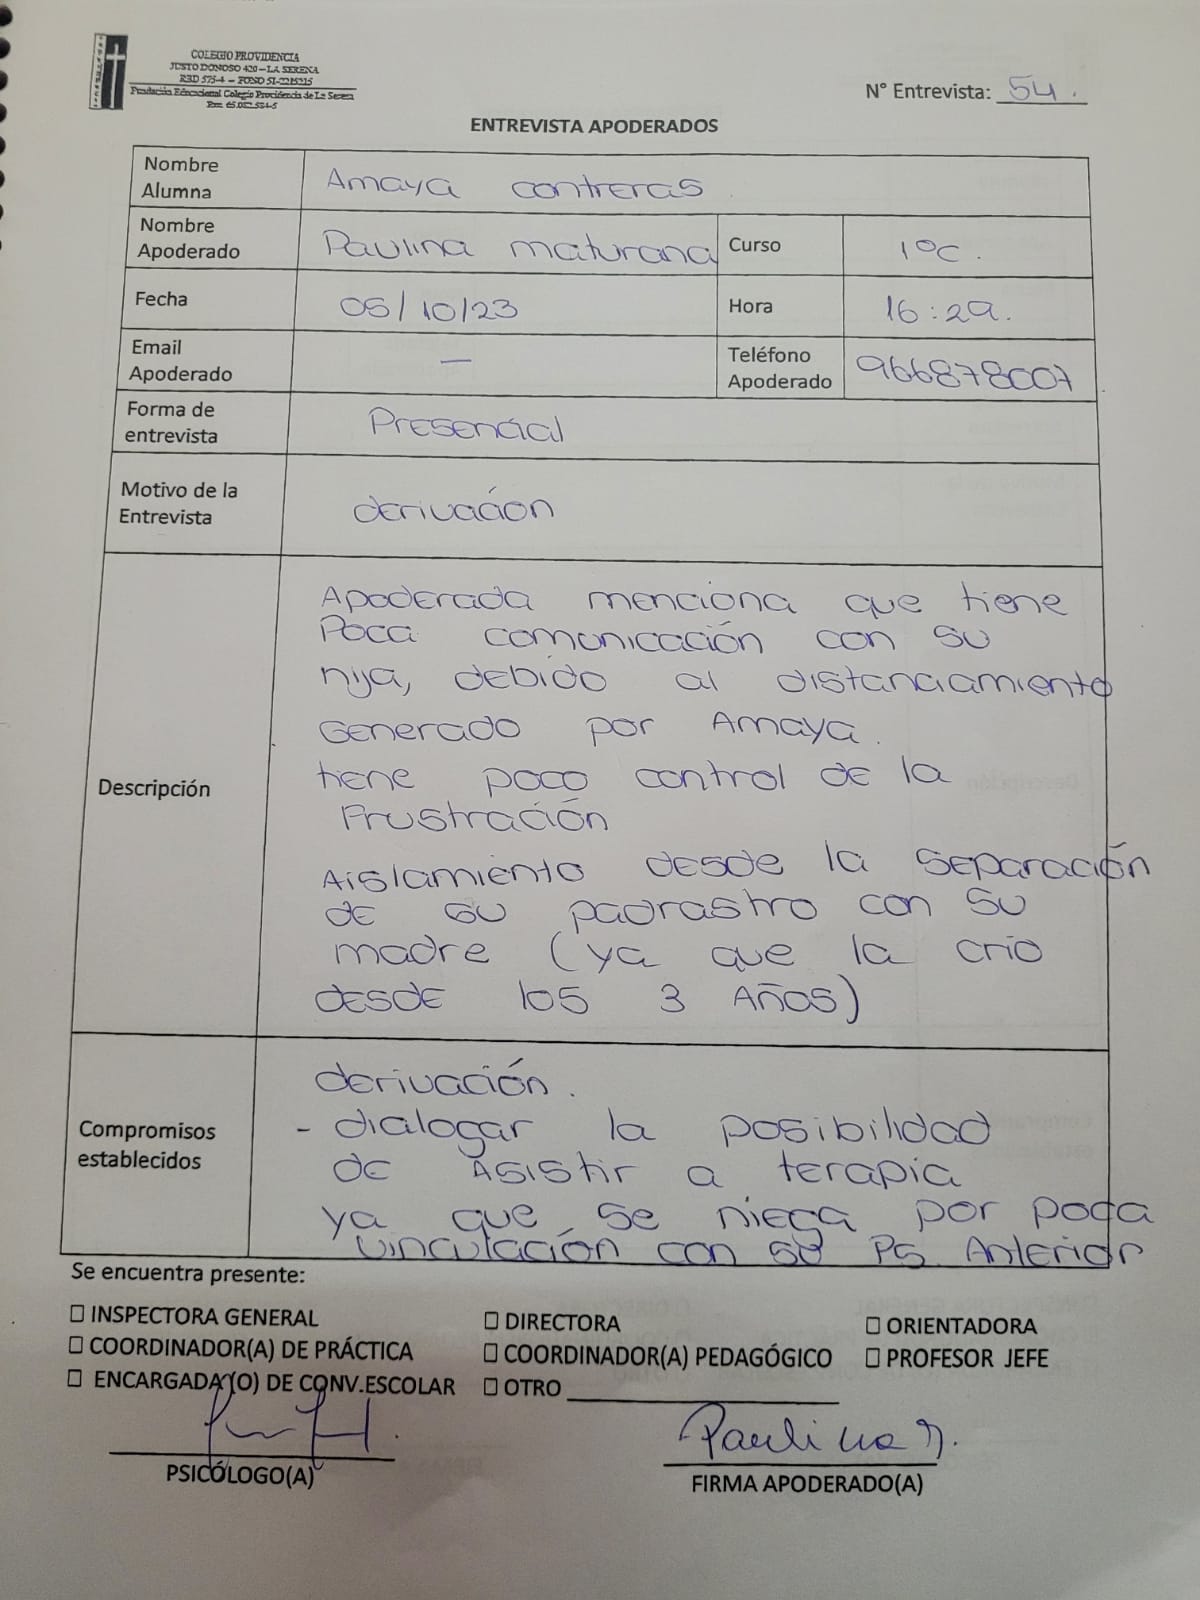 COLEGIO PROVIDENCIA
JUSTO DONOSO 420 – LA SERENA
RBD 575-4 – FONO 51-2215215
Fundación Educacional Colegio Providencia de La Serena
Rut: 65.082.524-5
N° Entrevista: 54.
ENTREVISTA APODERADOS
Nombre Alumna
Amaya contreras.
Nombre Apoderado
Paulina maturana
Curso
1°C.
Fecha
05/10/23
Hora
16:29.
Email Apoderado
—
Teléfono Apoderado
966878007
Forma de entrevista
Presencial
Motivo de la Entrevista
derivación
Descripción
Apoderada menciona que tiene
Poca comunicación con su
hija, debido al distanciamiento
Generado por Amaya.
tiene poco control de la
Frustración
Aislamiento desde la separación
de su padrastro con su
madre (ya que la crio
desde los 3 Años)
Compromisos establecidos
derivación.
- dialogar la posibilidad
de Asistir a terapia
ya que se niega por poca
vinculación con su Ps. Anterior
Se encuentra presente:
☐ INSPECTORA GENERAL
☐ DIRECTORA
☐ ORIENTADORA
☐ COORDINADOR(A) DE PRÁCTICA
☐ COORDINADOR(A) PEDAGÓGICO
☐ PROFESOR JEFE
☐ ENCARGADA (O) DE CONV.ESCOLAR
☐ OTRO
Paulina M.
PSICÓLOGO(A)
FIRMA APODERADO(A)